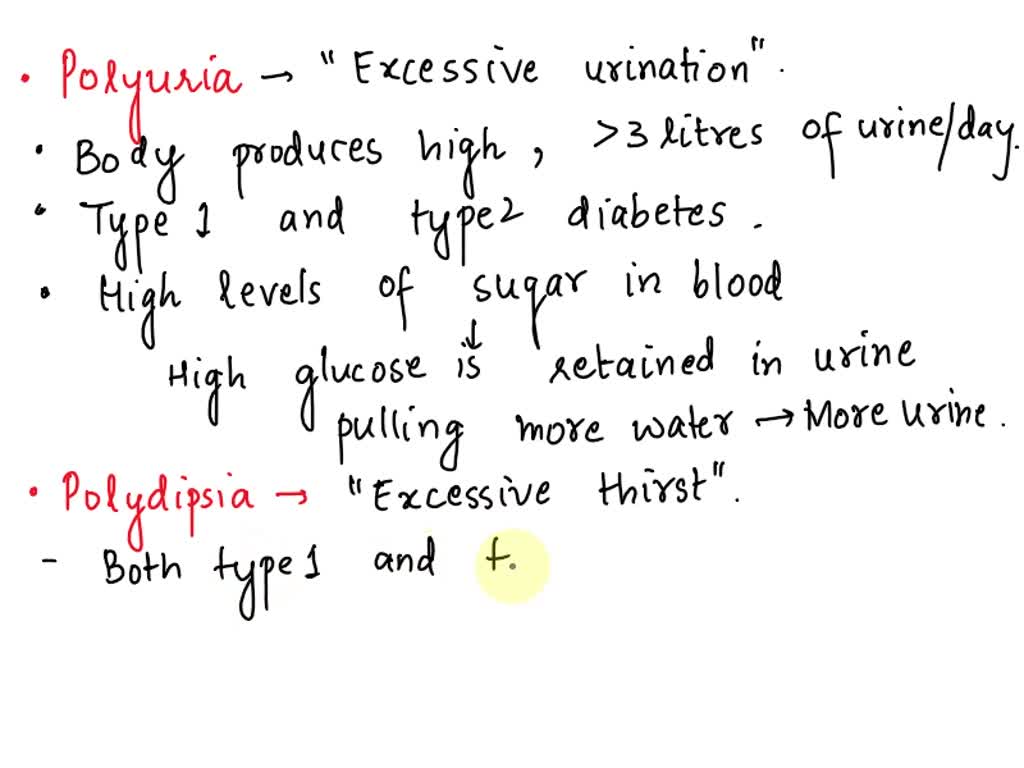 • Polyuria → "Excessive urination".
• Body produces high, >3 litres of urine/day.
• Type 1 and type 2 diabetes.
• High levels of sugar in blood
↓
High glucose is retained in urine
pulling more water → More urine.
• Polydipsia → "Excessive thirst".
- Both type 1 and t.